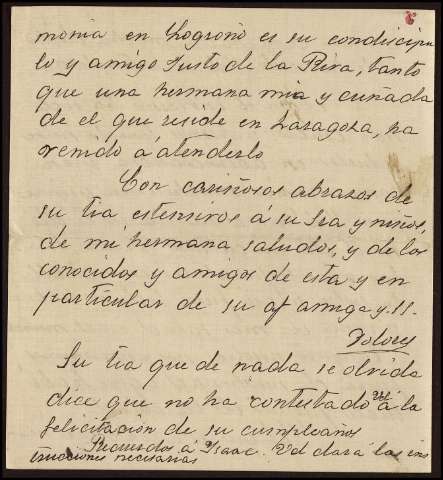 monia en Logroño es su condiscipu
lo y amigo Justo de la Riva, tanto
que una hermana mia y cuñada
de el que reside en Zaragoza, ha
venido á atenderlo
Con cariñosos abrazos de
su tia estensivos á su Sra y niños,
de mi hermana saludos, y de los
conocidos y amigos de esta y en
particular de su af amiga y SS.
Dolores
Su tia que de nada se olvida
dice que no ha contestado Vd á la
felicitación de su cumpleaños
Recuerdos á Isaac. Vd dará las ins
trucciones necesarias